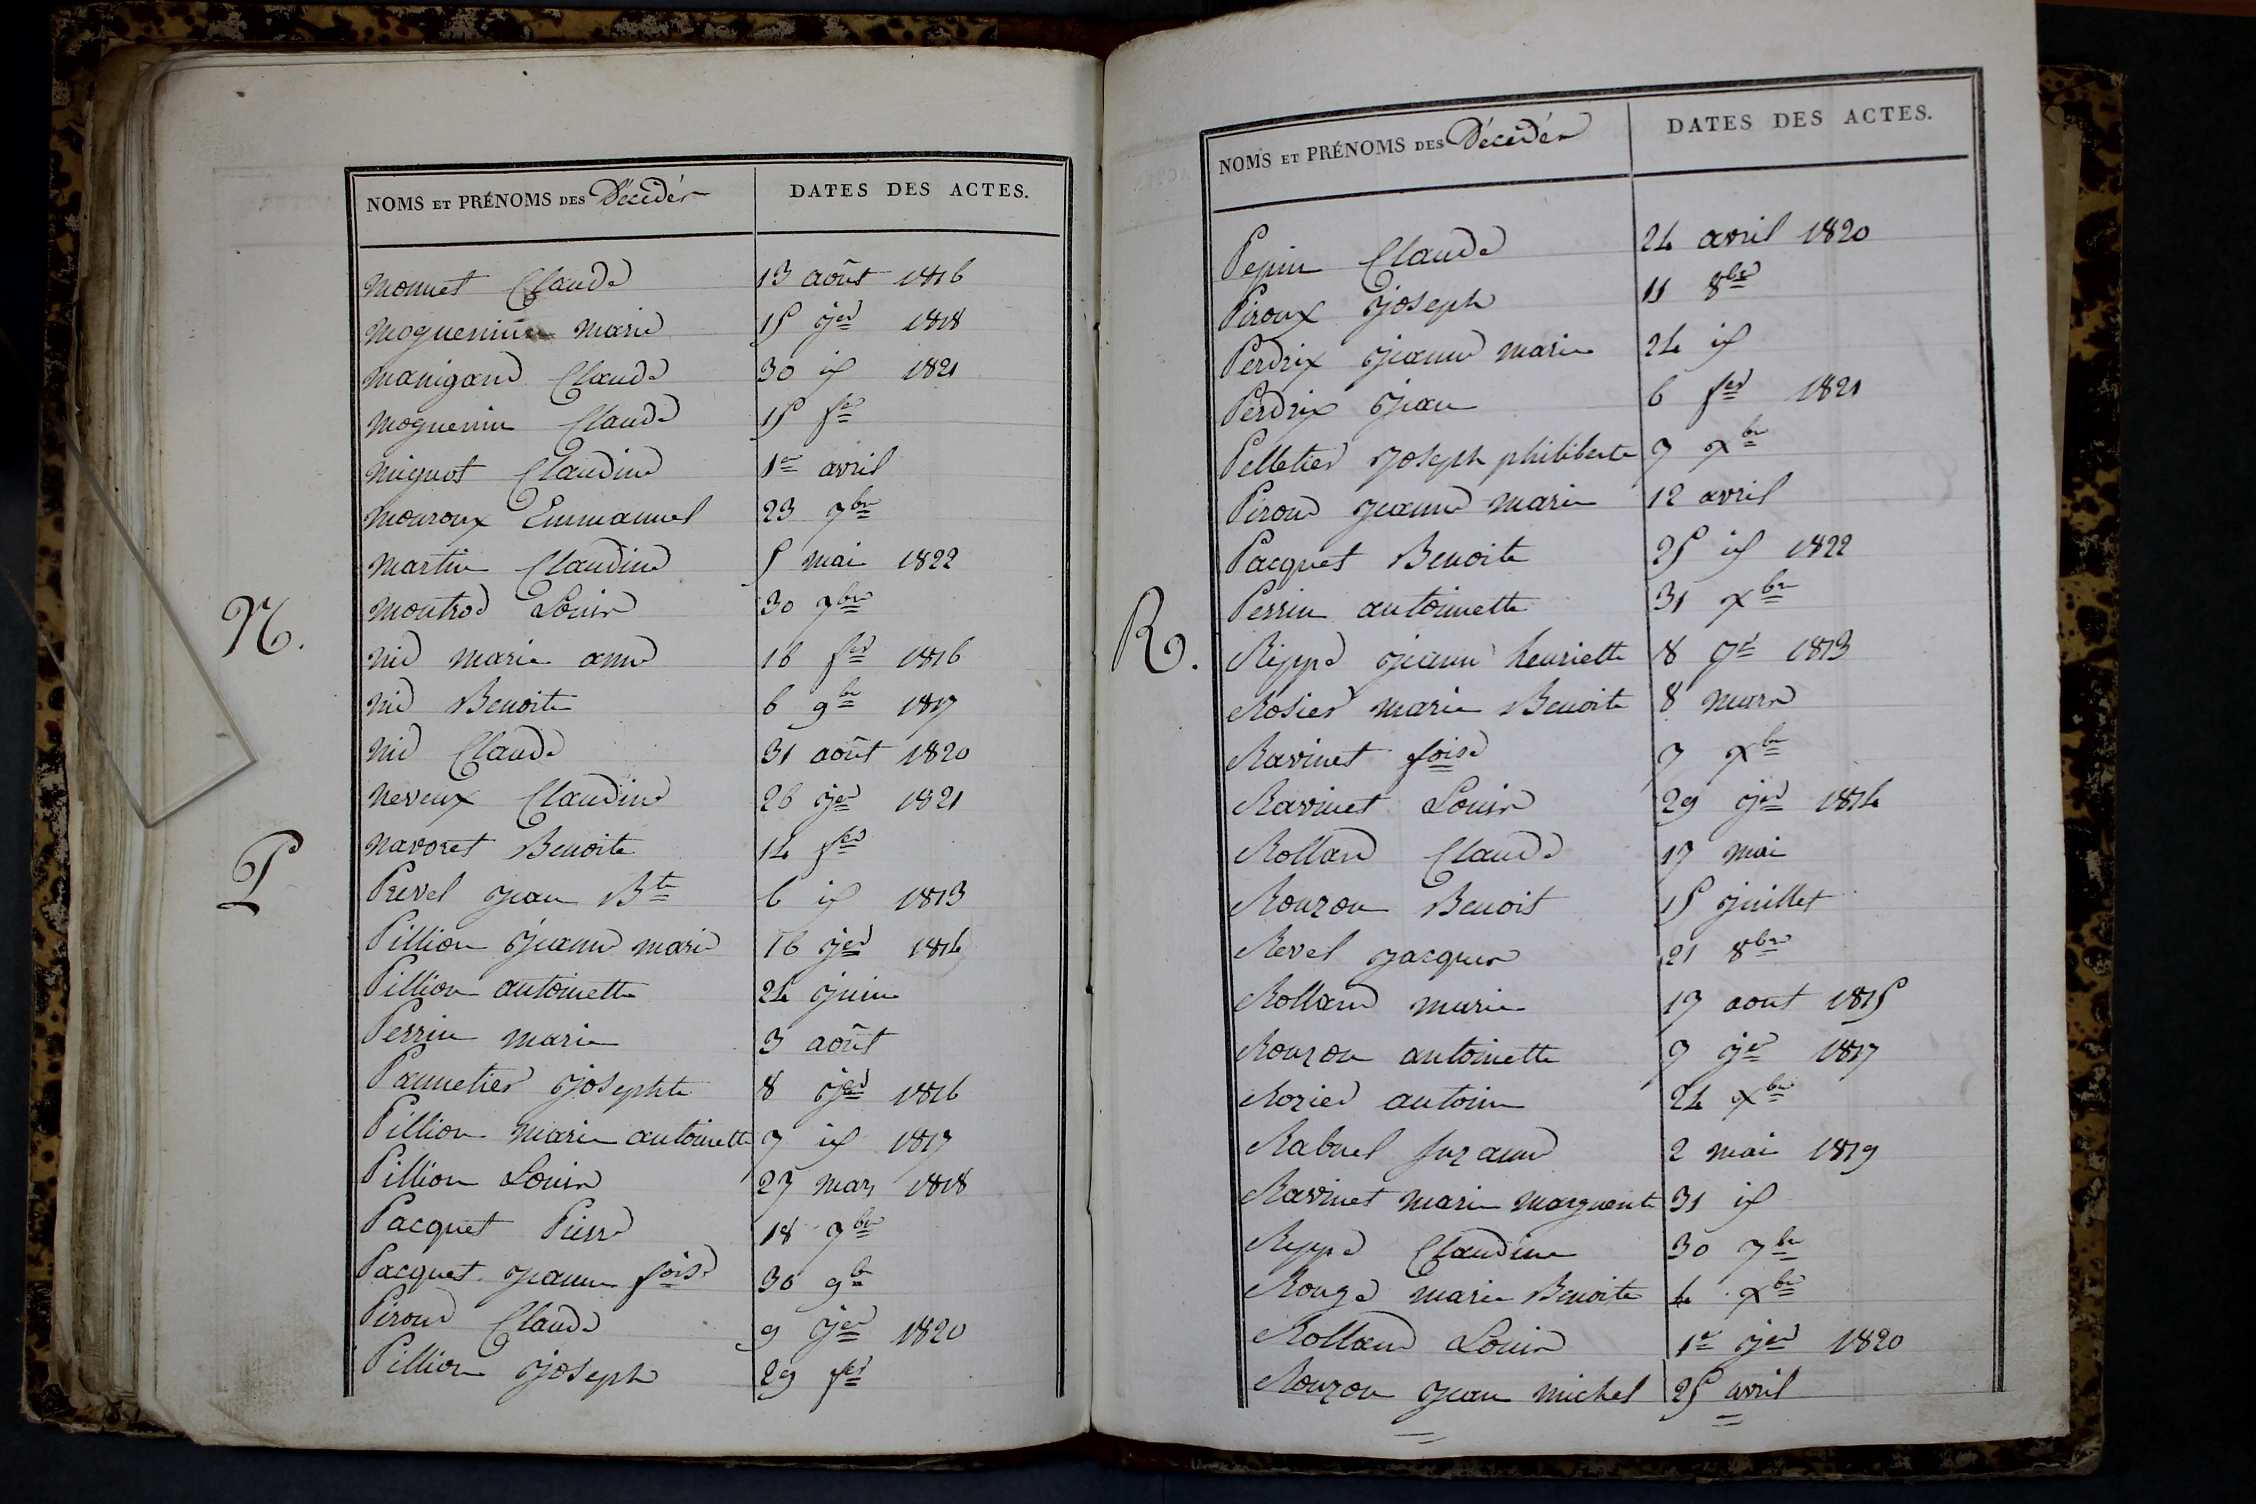 NOMS ET PRÉNOMS DES Décédés DATES DES ACTES.
Monnet Claude 13 août 1816
Moguenin Marie 15 jer 1818
Manigand Claude 30 id 1821
Moguenin Claude 15 fr
Mignot Claudine 1er avril
Mouroux Emmanuel 23 7bre
Martin Claudine 5 mai 1822
Montrod Louis 30 7bre
N.
Nid marie anne 16 fer 1816
Nid Benoite 6 9bre 1817
Nid Claude 31 août 1820
Neveux Claudine 26 jer 1821
Navoret Benoite 14 fer
P
Prevel jean Bte 6 id 1813
Pillion jeanne marie 16 jer 1814
Pillion antoinette 24 juin
Perrin marie 3 août
Pannetier josephte 8 jer 1816
Pillion marie antoinette 7 id 1817
Pillion Louis 27 mars 1818
Pacquet Pierre 18 7bre
Pacquet jeanne foise 30 9b
Piroud Claude 9 jer 1820
Pillion joseph 29 fer
NOMS ET PRÉNOMS DES Décédés DATES DES ACTES.
Pepin Claude 24 avril 1820
Piroux joseph 11 8bre
Perdrix jeanne marie 24 id
Perdrix jean 6 fer 1821
Pelletier joseph philiberte 7 xbre
Piroud jeanne marie 12 avril
Pacquet Benoite 25 id 1822
Perrin antoinette 31 xbre
R.
Rippe jeanne henriette 8 jr 1813
Rosier marie Benoite 8 mars
Ravinet foise 7 xbre
Ravinet Louis 29 jer 1814
Rolland Claude 17 mai
Rouzon Benoit 15 juillet
Revel jacques 21 8bre
Rolland marie 17 aout 1815
Rouzon antoinette 9 jer 1817
Rozier antoine 24 xbre
Rabuel suzanne 2 mai 1819
Ravinet marie marguerite 31 id
Rippe Claudine 30 7bre
Rouge marie Benoite 4 xbre
Rolland Louis 1er jer 1820
Rouzon jean michel 25 avril